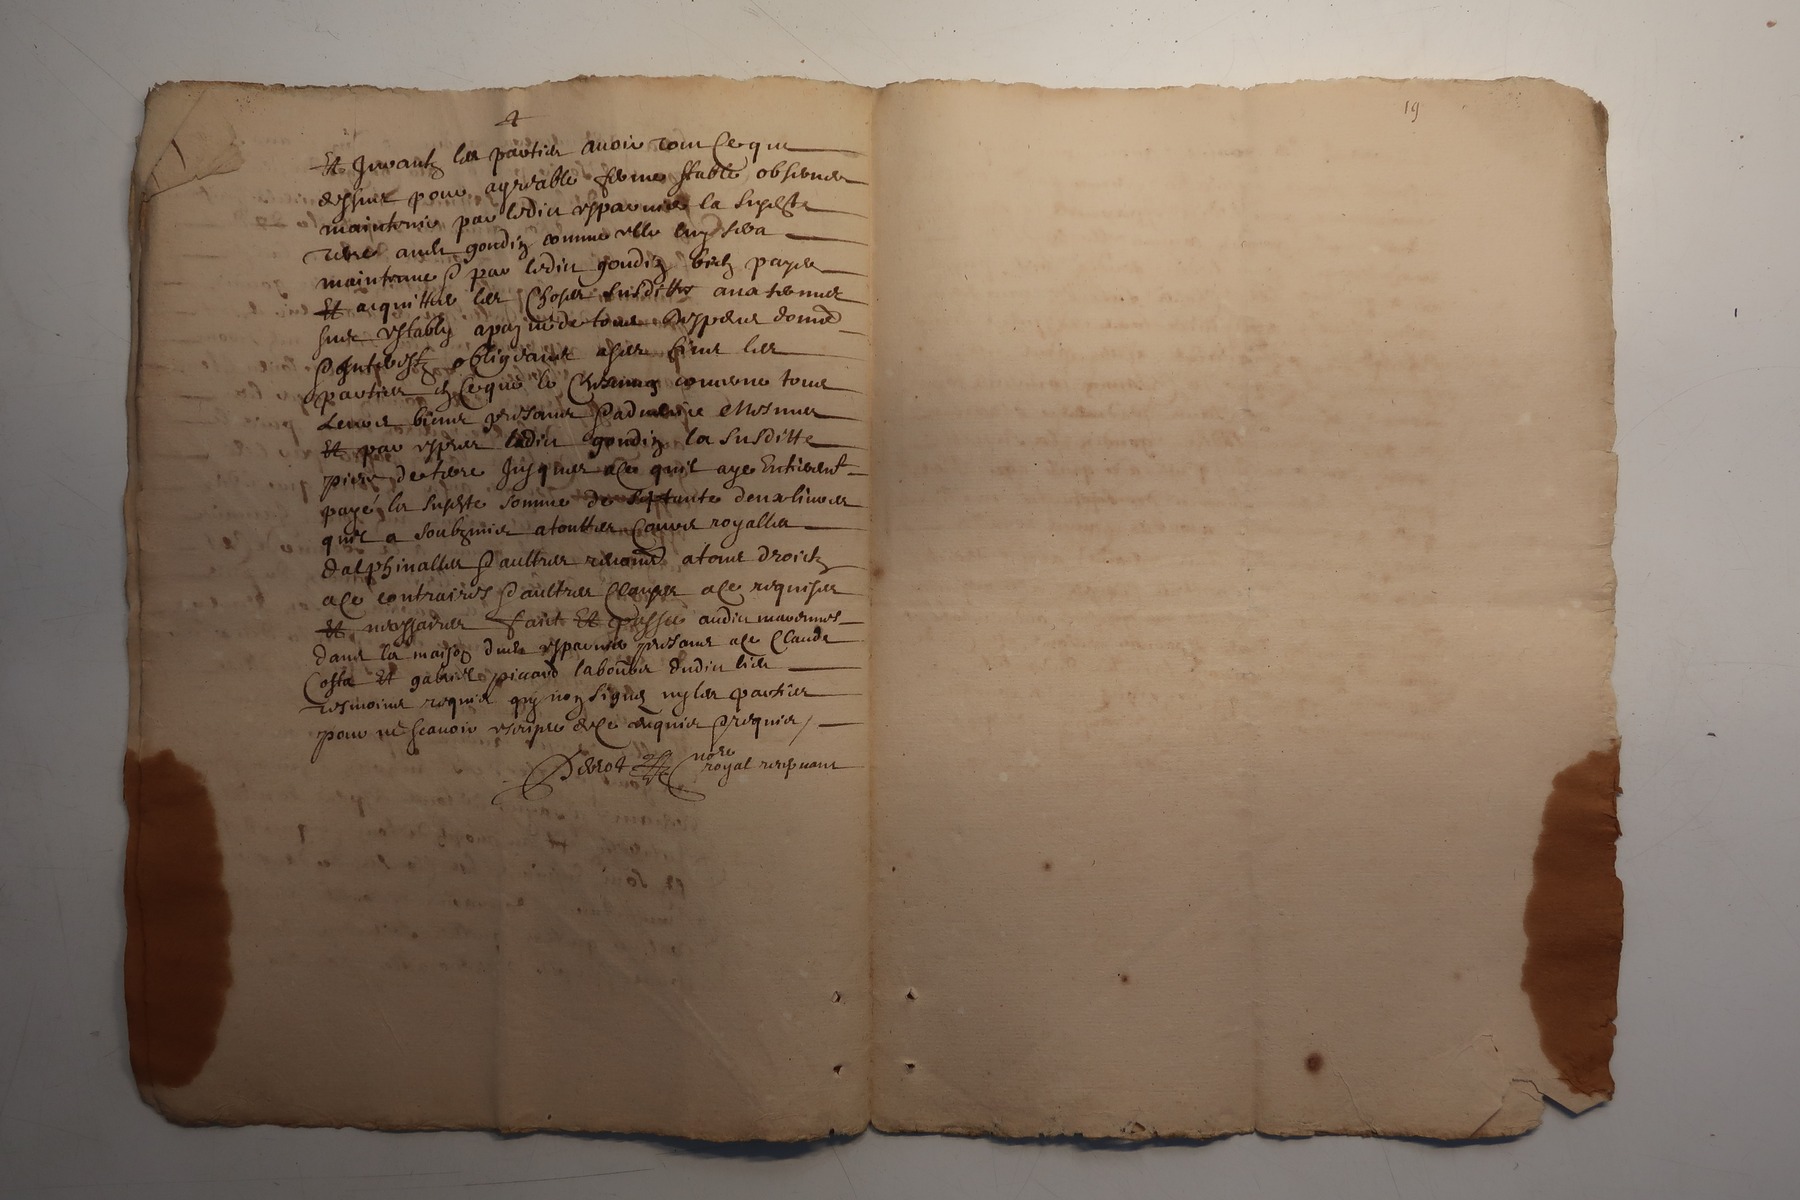 4
19
Et Jurantz les parties avoir tout ce que
dessus pour agreable ferme stable observer
maintenir par ledict esparvier la susdte
terre audt gondin comme elle luy sera
maintenue & par ledict gondin bien payer
Et acquitter les choses susdittes aux termes
sus establis a paine de tous despens dom
& Intherestz obligeant a ces fins les
parties en ce que le concerne tous
Leurs biens presans & advenir
Et par expres ledict gondin la susditte
piece de terre Jusques a ce quil aye Entierent
paye la susdte somme de septante deux livres
quil a soubzmis a touttes Cours royalles
dalphinalles & aultres renond a tous droictz
a ce contraires & aultres Clauses a ce requises
Et necessaires faict Et passe audict
dans la maison dudt esparvier presans a ce Claude
Coste Et gabriel picard laboureur dudict lieu
tesmoins requis quy non signe ny les parties
pour ne scavoir escripre de ce enquis & requis /
Perrot nore
royal recepvant